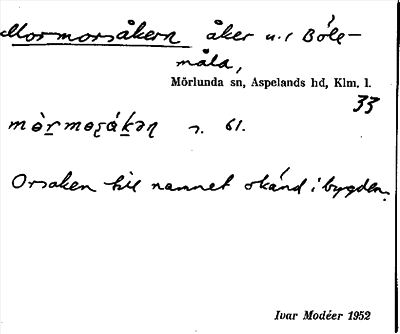 Mormorsåkern åker u. i Böle-
måla,
Mörlunda sn, Aspelands hd, Klm. l.
33
s. 61.
Orsaken till namnet okänd i bygden.
Ivar Modéer 1952